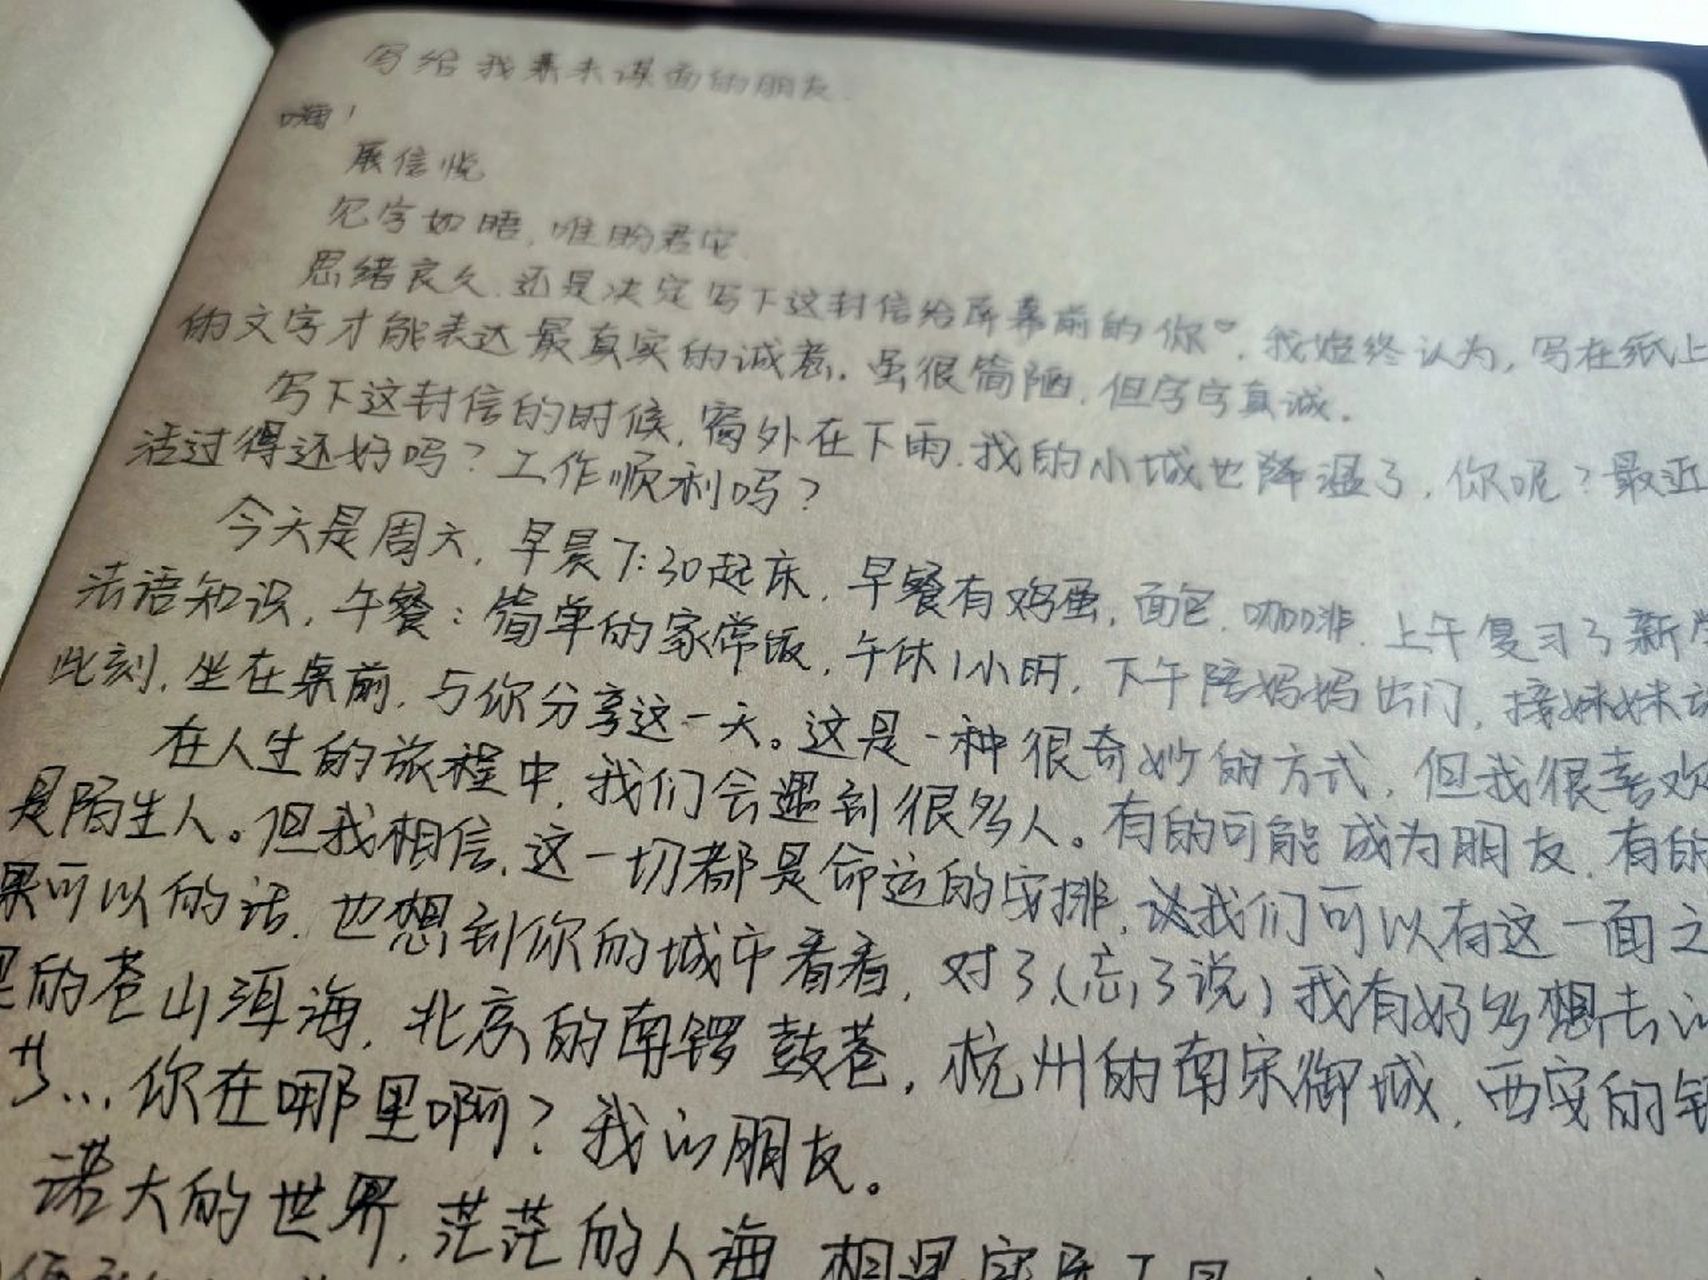 写给我素未谋面的朋友.
嗨!
展信悦
见字如晤, 唯盼君安.
思绪良久, 还是决定写下这封信给屏幕前的你♡. 我始终认为, 写在纸上
的文字才能表达最真实的诚意. 虽很简陋, 但字字真诚.
写下这封信的时候, 窗外在下雨. 我的小城也降温了, 你呢? 最近
活过得还好吗? 工作顺利吗?
今天是周六, 早晨7:30起床, 早餐有鸡蛋, 面包, 咖啡. 上午复习了新
法语知识, 午餐: 简单的家常饭, 午休1小时, 下午陪妈妈出门, 接妹妹
此刻, 坐在桌前, 与你分享这一天。这是一种很奇妙的方式, 但我很喜欢
在人生的旅程中, 我们会遇到很多人。有的可能成为朋友, 有的
是陌生人。但我相信, 这一切都是命运的安排, 让我们可以有这一面之
果可以的话, 也想到你的城市看看, 对了(忘了说) 我有好多想去
里的苍山洱海, 北京的南锣鼓巷, 杭州的南宋御城, 西安的
... 你在哪里啊? 我的朋友。
诺大的世界, 茫茫的人海, 相遇